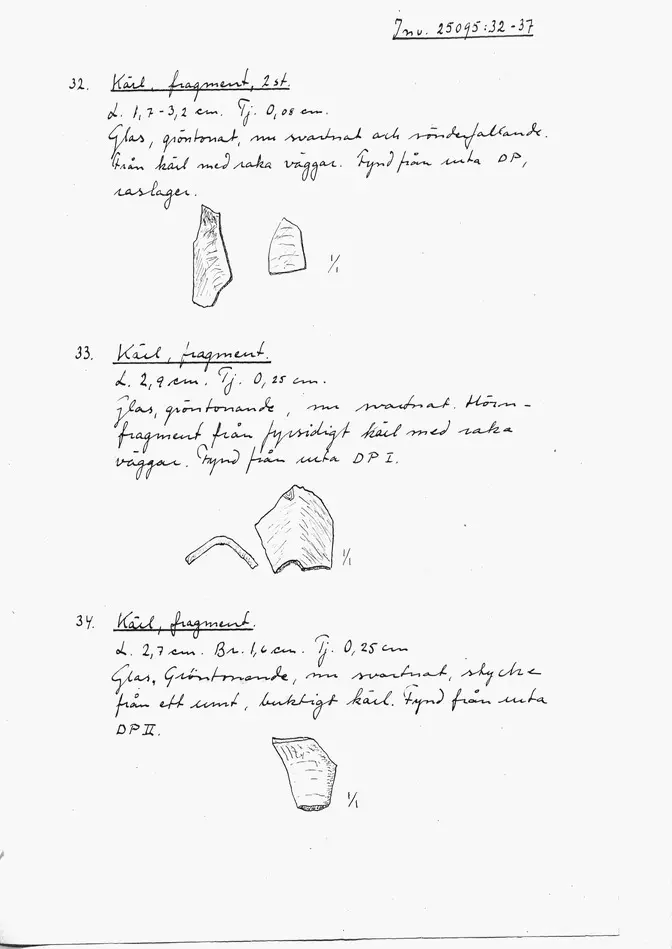 Inv. 25095:32-37
32. Kärl, fragment, 2 st.
L. 1,7-3,2 cm. Tj. 0,08 cm.
Glas, gröntonat, nu svartnat och sönderfallande.
Från kärl med raka väggar. Fynd från ruta DP,
raslager.
1/1
33. Kärl, fragment.
L. 2,9 cm. Tj. 0,25 cm.
Glas, gröntonande, nu svartnat. Hörn-
fragment från fyrsidigt kärl med raka
väggar. Fynd från ruta DP I.
1/1
34. Kärl, fragment.
L. 2,7 cm. Br. 1,6 cm. Tj. 0,25 cm
Glas, Gröntonande, nu svartnat, stycke
från ett runt, buktigt kärl. Fynd från ruta
DP II.
1/1